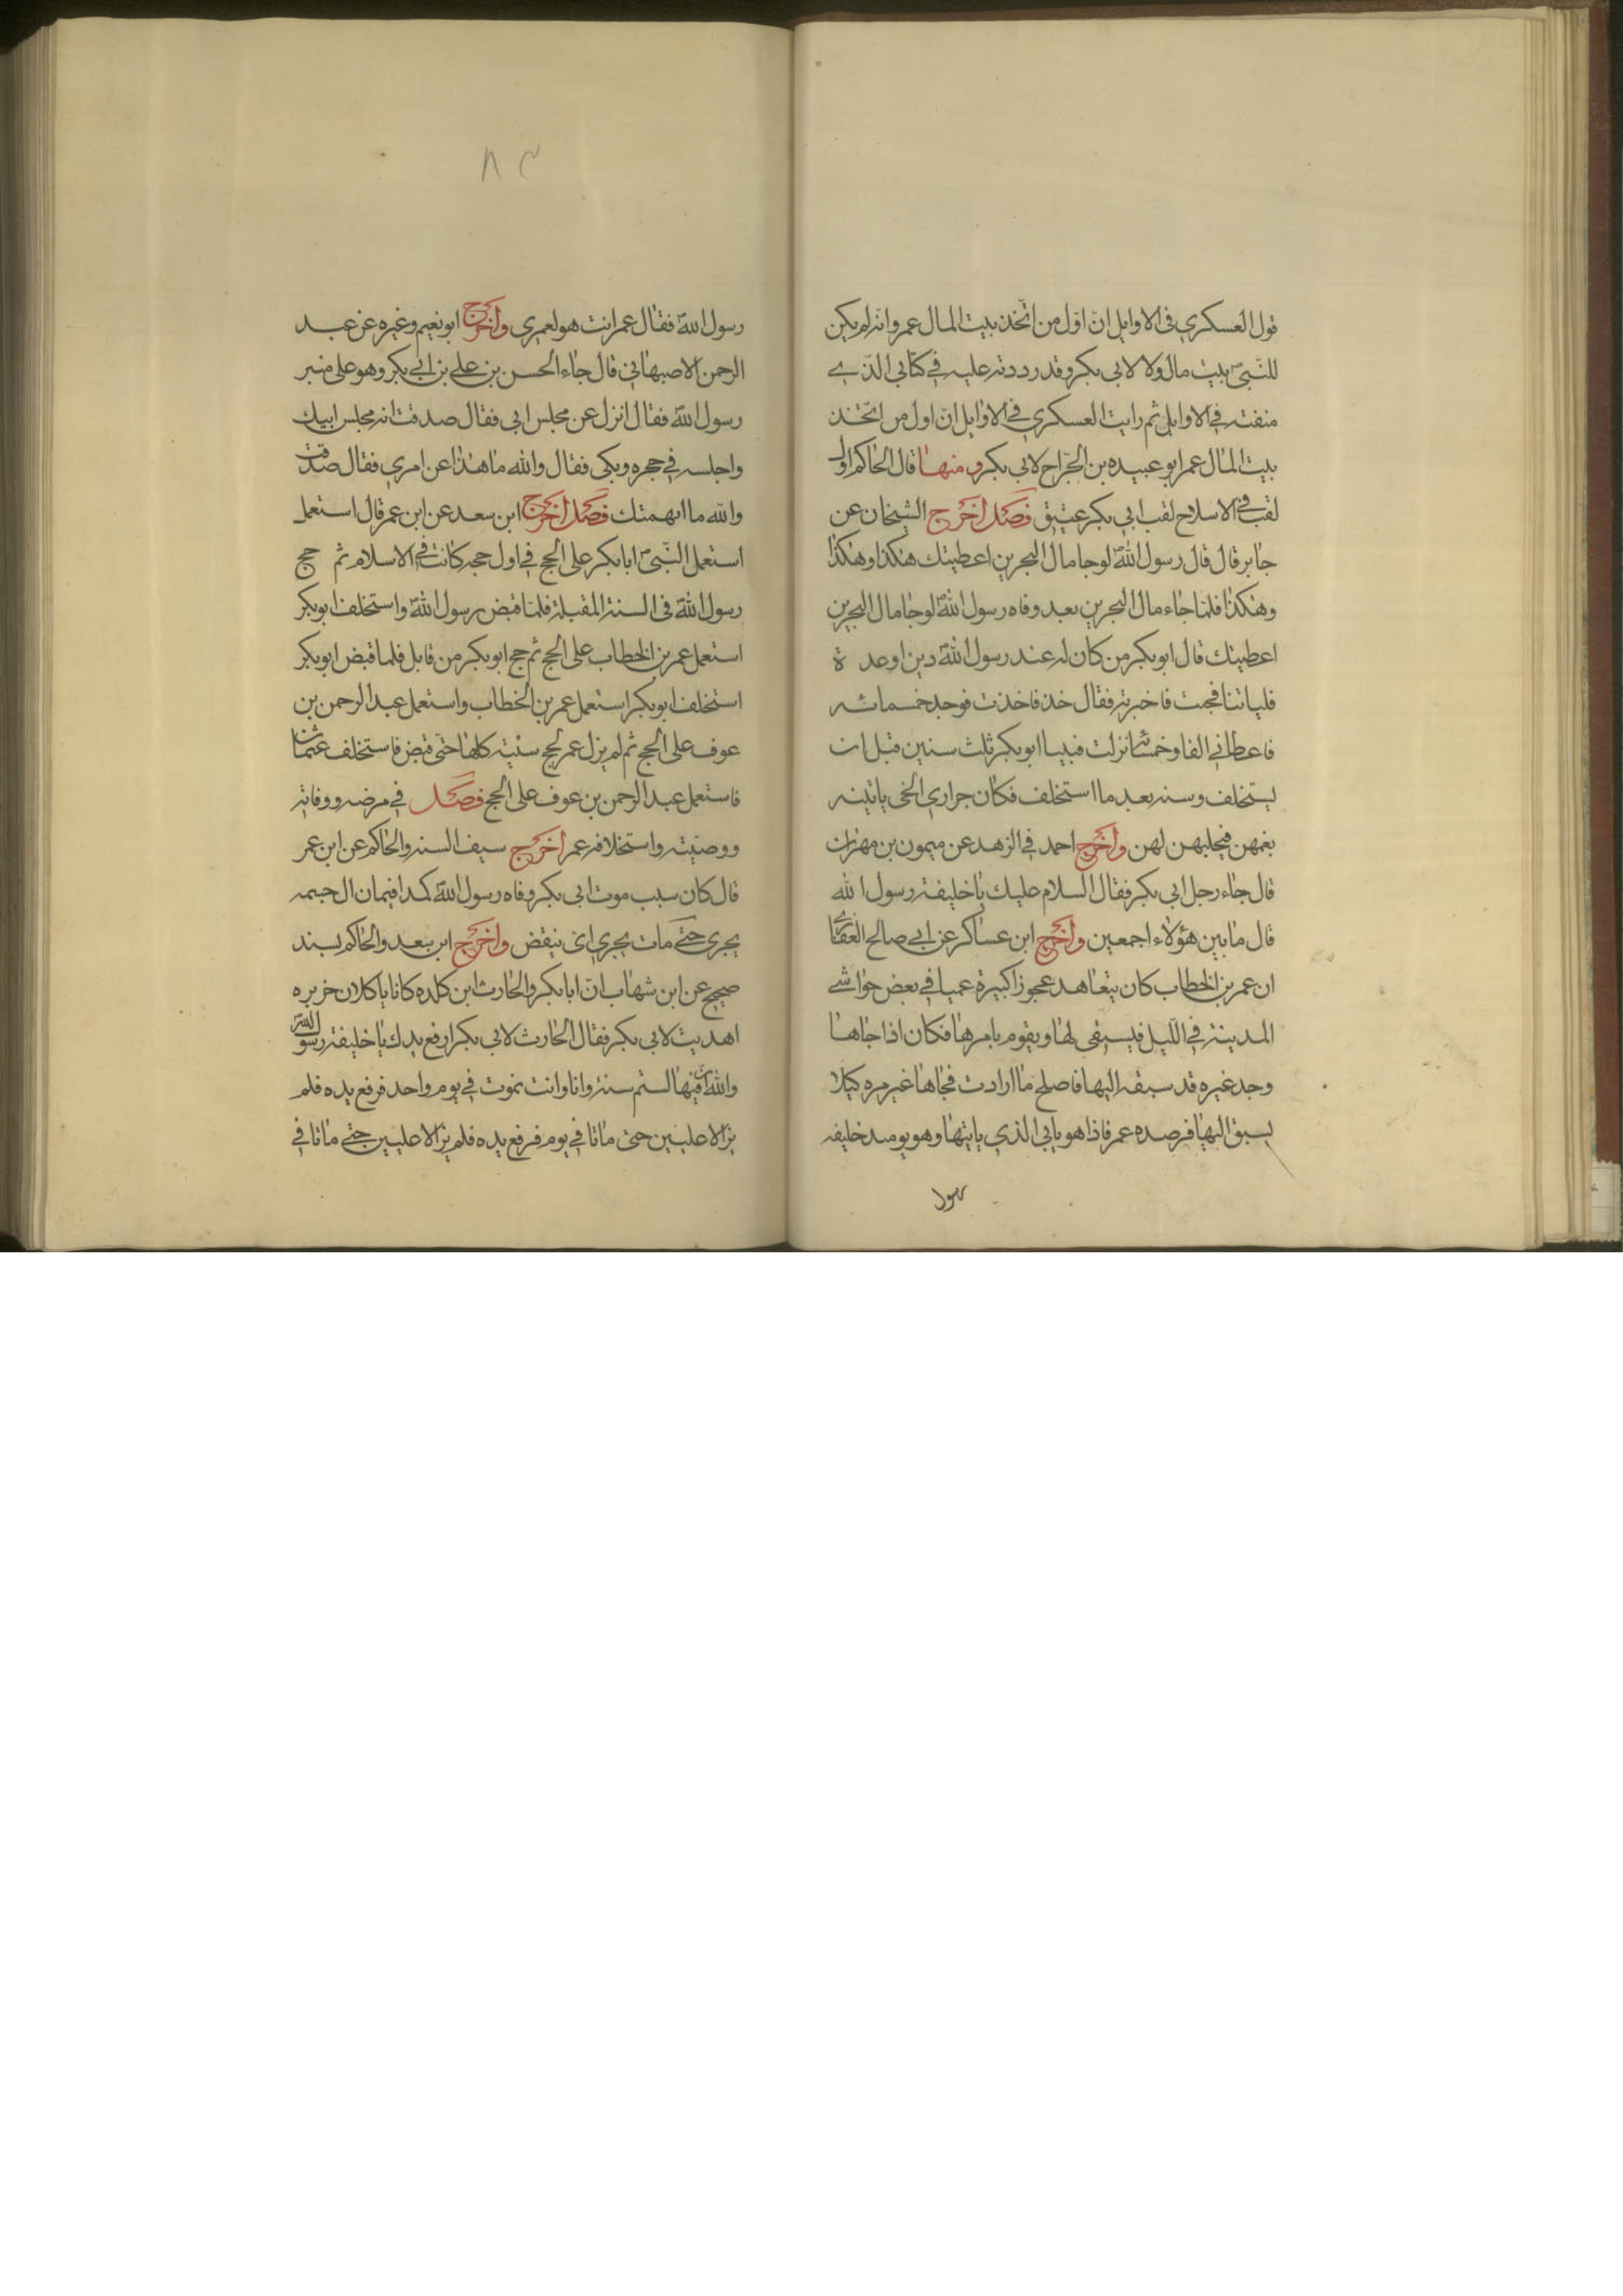 قول العسكري في الاوايل انّ اوّل من اتّخذ بيت المال عمر وانه لم يكن
للنبيّ بيت مال ولا لابي بكر وقد رددته عليه في كتابي الذي
صنفته في الاوايل ثم رايت العسكري في الاوايل انّ اول من اتّخذ
بيت المال عمر ابو عبيده بن الجرّاح لابي بكر ومنها قال الحاكم اول
لقب في الاسلام لقب ابي بكر عتيق فصل اخرج الشيخان عن
جابر قال قال رسول اللهؐ لو جا مال البحرين اعطيتك هكذا وهكذا
وهكذا فلما جاء مال البحرين بعد وفاه رسول اللهؐ لو جا مال البحرين
اعطيتك قال ابو بكر من كان له عند رسول اللهؐ دين او عدة
فلياتنا فجئت فاخبرته فقال خذ فاخذت فوجد خمسمائه
فاعطاني الفا وخمسمائه نزلت فينا ابو بكر ثلث سنين قبل ان
يستخلف وسنه بعد ما استخلف فكان جواري الحي ياتينه
بغمهن فيحلبهن لهن واخرج احمد في الزهد عن ميمون بن مهران
قال جاء رجل ابي بكر فقال السلام عليك يا خليفة رسول الله
قال ما بين هؤلاء اجمعين واخرج ابن عساكر عن ابي صالح الغفاري
ان عمر بن الخطاب كان يتعاهد عجوزا كبيرة عميا في بعض حواشي
المدينة في الليل فيسقي لها ويقوم بامرها فكان اذا جاها
وجد غيره قد سبقه اليها فاصلح ما ارادت فجاها غير مره كيلا
يسبق اليها فرصده عمر فاذا هو بابي الذي ياتيها وهو يومىد خليفه
رسول
٨٣
رسول اللهؐ فقال عمر انت هو لعمري واخرج ابو نعيم وغيره عن عبد
الرحمن الاصبهاني قال جاء الحسن بن علي بن ابي بكر وهو على منبر
رسول اللهؐ فقال انزل عن مجلس ابي فقال صدقت انه مجلس ابيك
واجلسه في حجره وبكى فقال والله ما هذا عن امري فقال صدقت
والله ما اتهمتك فصل اخرج ابن سعد عن ابن عمر قال استعمل
استعمل النبيّ ابا بكر على الحج في اول حجه كانت في الاسلام ثم حج
رسول اللهؐ في السنة المقبلة فلما قبض رسول اللهؐ واستخلف ابو بكر
استعمل عمر بن الخطاب على الحج ثم حج ابو بكر من قابل فلما قبض ابو بكر
استخلف ابو بكر استعمل عمر بن الخطاب واستعمل عبد الرحمن بن
عوف على الحج ثم لم يزل عمر يحج سنيه كلها حتى قبض فاستخلف عثمان
فاستعمل عبد الرحمن بن عوف على الحج فصل في مرضه ووفاته
ووصيته واستخلافه عمر اخرج سيف السنه والحاكم عن ابن عمر
قال كان سبب موت ابي بكر وفاه رسول اللهؐ كمدا فيمان ال جسمه
يجري حتى مات يجري اي ينقض واخرج ابن سعد والحاكم بسند
صحيح عن ابن شهاب انّ ابا بكر والحارث ابن كلده كانا ياكلان خزيره
اهديت لابي بكر فقال الحارث لابي بكر ارفع يدك يا خليفة رسول الله
والله ان فيها لسم سنة وانا وانت نموت في يوم واحد فرفع يده فلم
يزالا عليين حتى ماتا في يوم فرفع يده فلم يزالا عليين حتى ماتا في